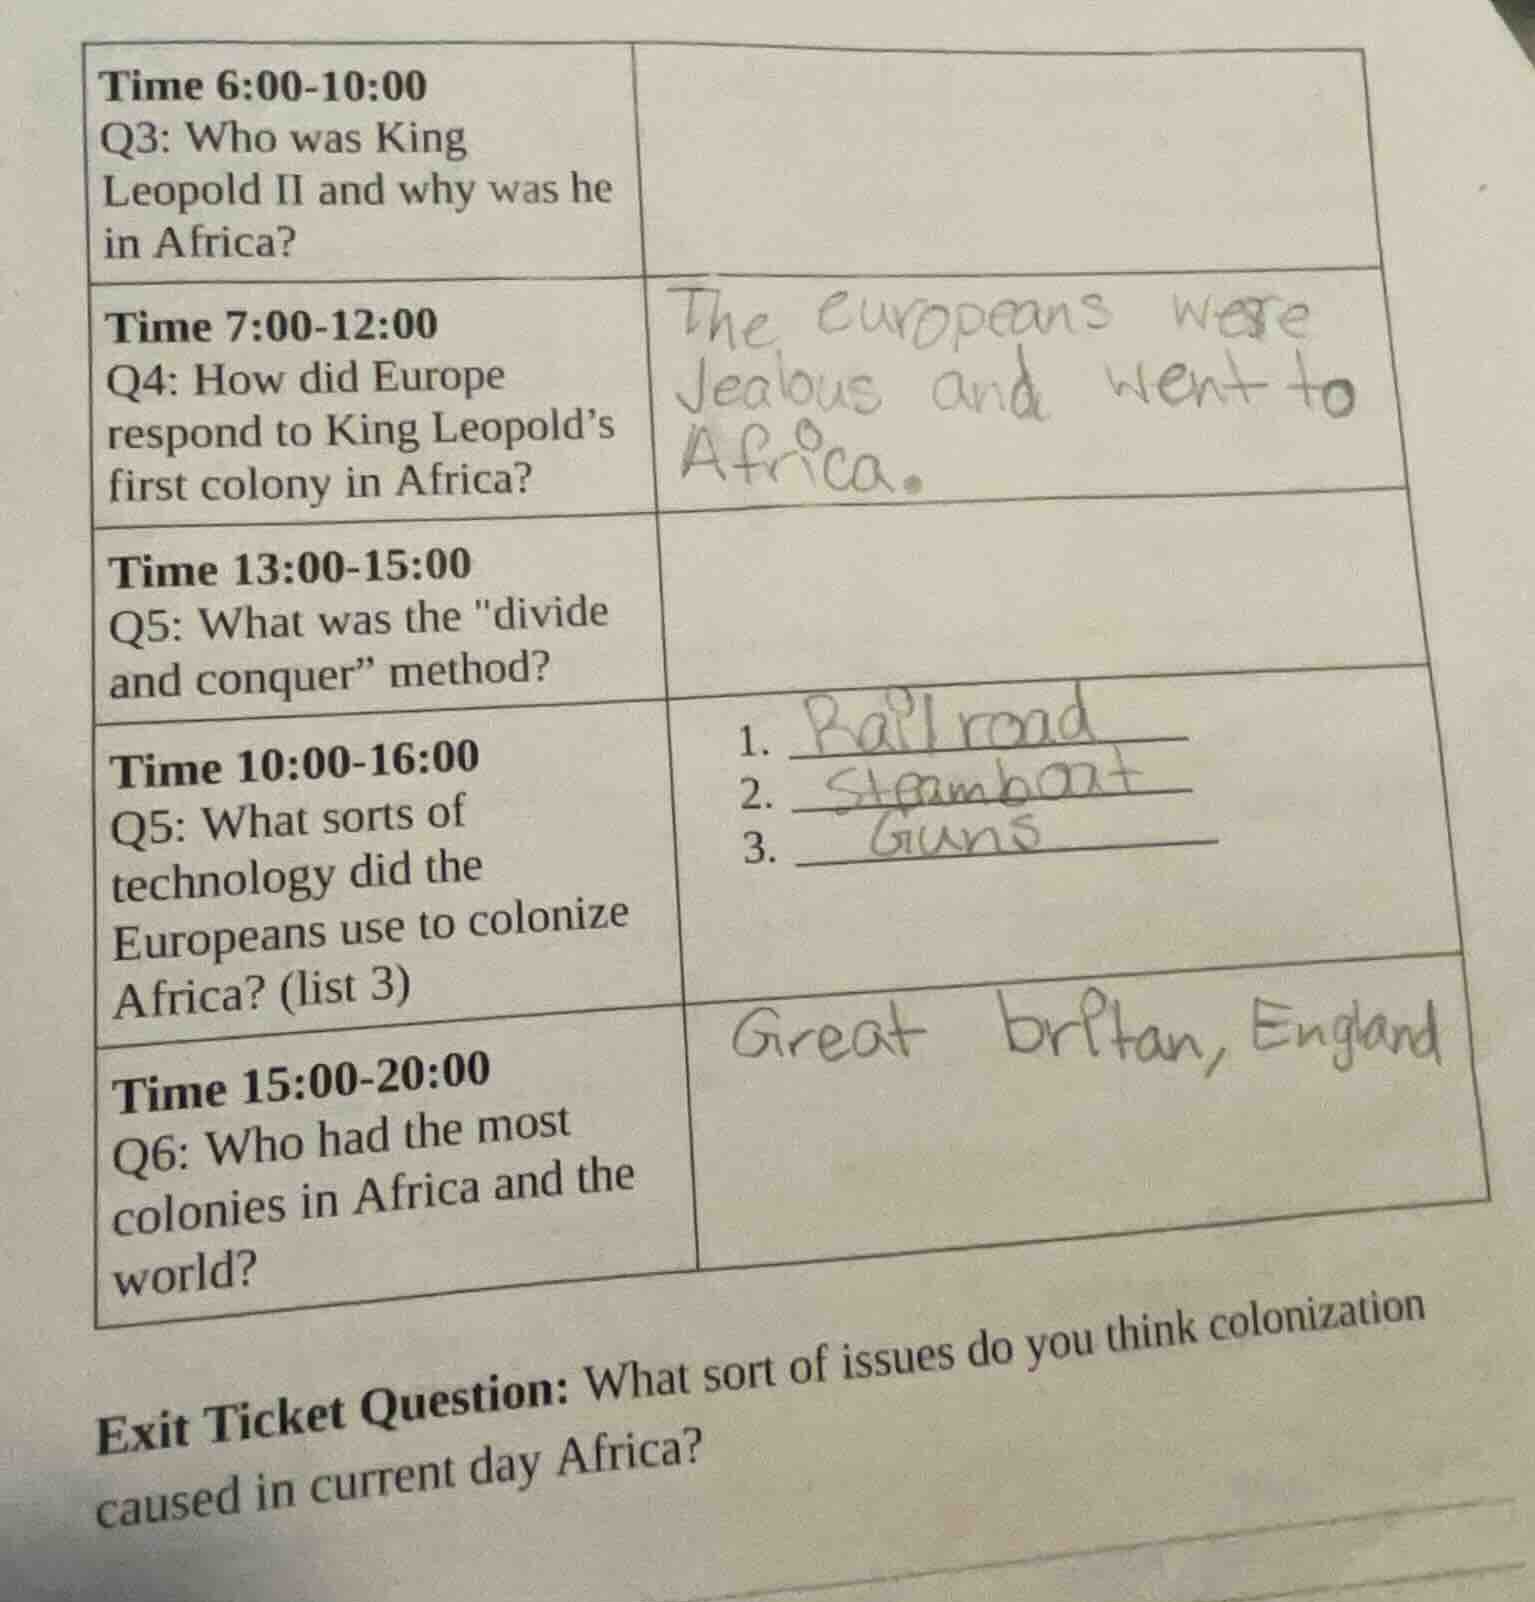 Time 6:00-10:00
Q3: Who was King
Leopold II and why was he
in Africa?
Time 7:00-12:00
Q4: How did Europe
respond to King Leopold's
first colony in Africa?
The europeans were
Jealous and went to
Africa.
Time 13:00-15:00
Q5: What was the "divide
and conquer” method?
Time 10:00-16:00
Q5: What sorts of
technology did the
Europeans use to colonize
Africa? (list 3)
1. Railroad
2. Steamboat
3. Guns
Time 15:00-20:00
Q6: Who had the most
colonies in Africa and the
world?
Great britan, England
Exit Ticket Question: What sort of issues do you think colonization
caused in current day Africa?